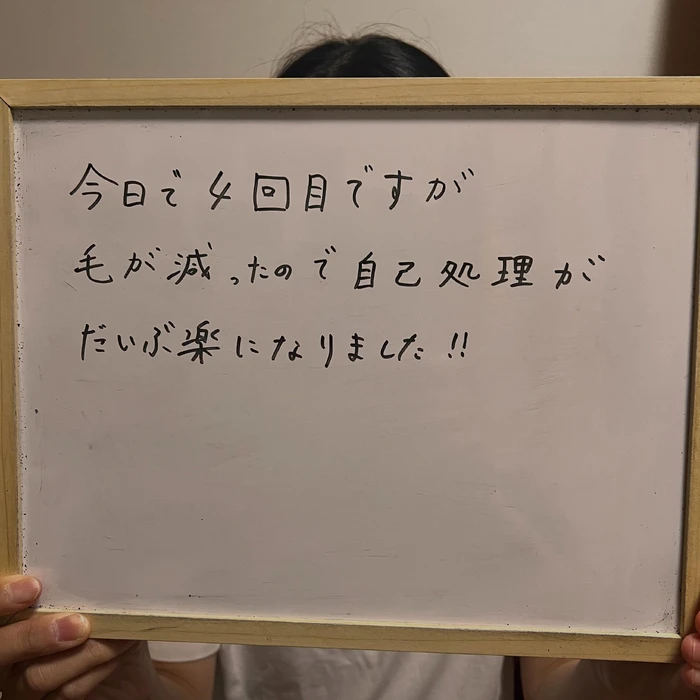 今日で4回目ですが
毛が減ったので自己処理が
だいぶ楽になりました!!